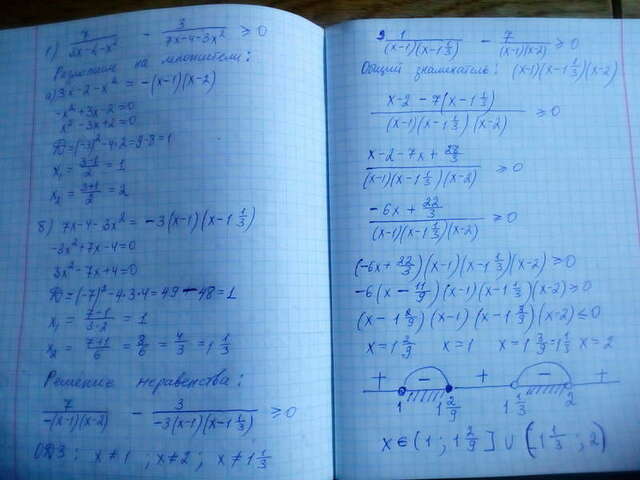 1) 7/(3x-2-x²) - 3/(7x-4-3x²) ≥ 0
Разложение на множители:
а) 3x-2-x² = -(x-1)(x-2)
-x²+3x-2=0
x²-3x+2=0
D=(-3)²-4·2=9-8=1
x₁ = (3-1)/2 = 1
x₂ = (3+1)/2 = 2
б) 7x-4-3x² = -3(x-1)(x-1 1/3)
-3x²+7x-4=0
3x²-7x+4=0
D=(-7)²-4·3·4=49-48=1
x₁ = (7-1)/(3·2) = 1
x₂ = (7+1)/6 = 8/6 = 4/3 = 1 1/3
Решение неравенства:
7/(-(x-1)(x-2)) - 3/(-3(x-1)(x-1 1/3)) ≥ 0
ОДЗ: x≠1; x≠2; x≠1 1/3
1/((x-1)(x-1 1/3)) - 7/((x-1)(x-2)) ≥ 0
Общий знаменатель: (x-1)(x-1 1/3)(x-2)
(x-2-7(x-1 1/3))/((x-1)(x-1 1/3)(x-2)) ≥ 0
(x-2-7x+28/3)/((x-1)(x-1 1/3)(x-2)) ≥ 0
(-6x+22/3)/((x-1)(x-1 1/3)(x-2)) ≥ 0
(-6x+22/3)(x-1)(x-1 1/3)(x-2) ≥ 0
-6(x-11/9)(x-1)(x-1 1/3)(x-2) ≥ 0
(x-1 2/9)(x-1)(x-1 3/9)(x-2) ≤ 0
x=1 2/9 x=1 x=1 3/9=1 1/3 x=2
+ - + - +
1 1 2/9 1 1/3 2
x∈(1; 1 2/9] ∪ (1 1/3; 2)